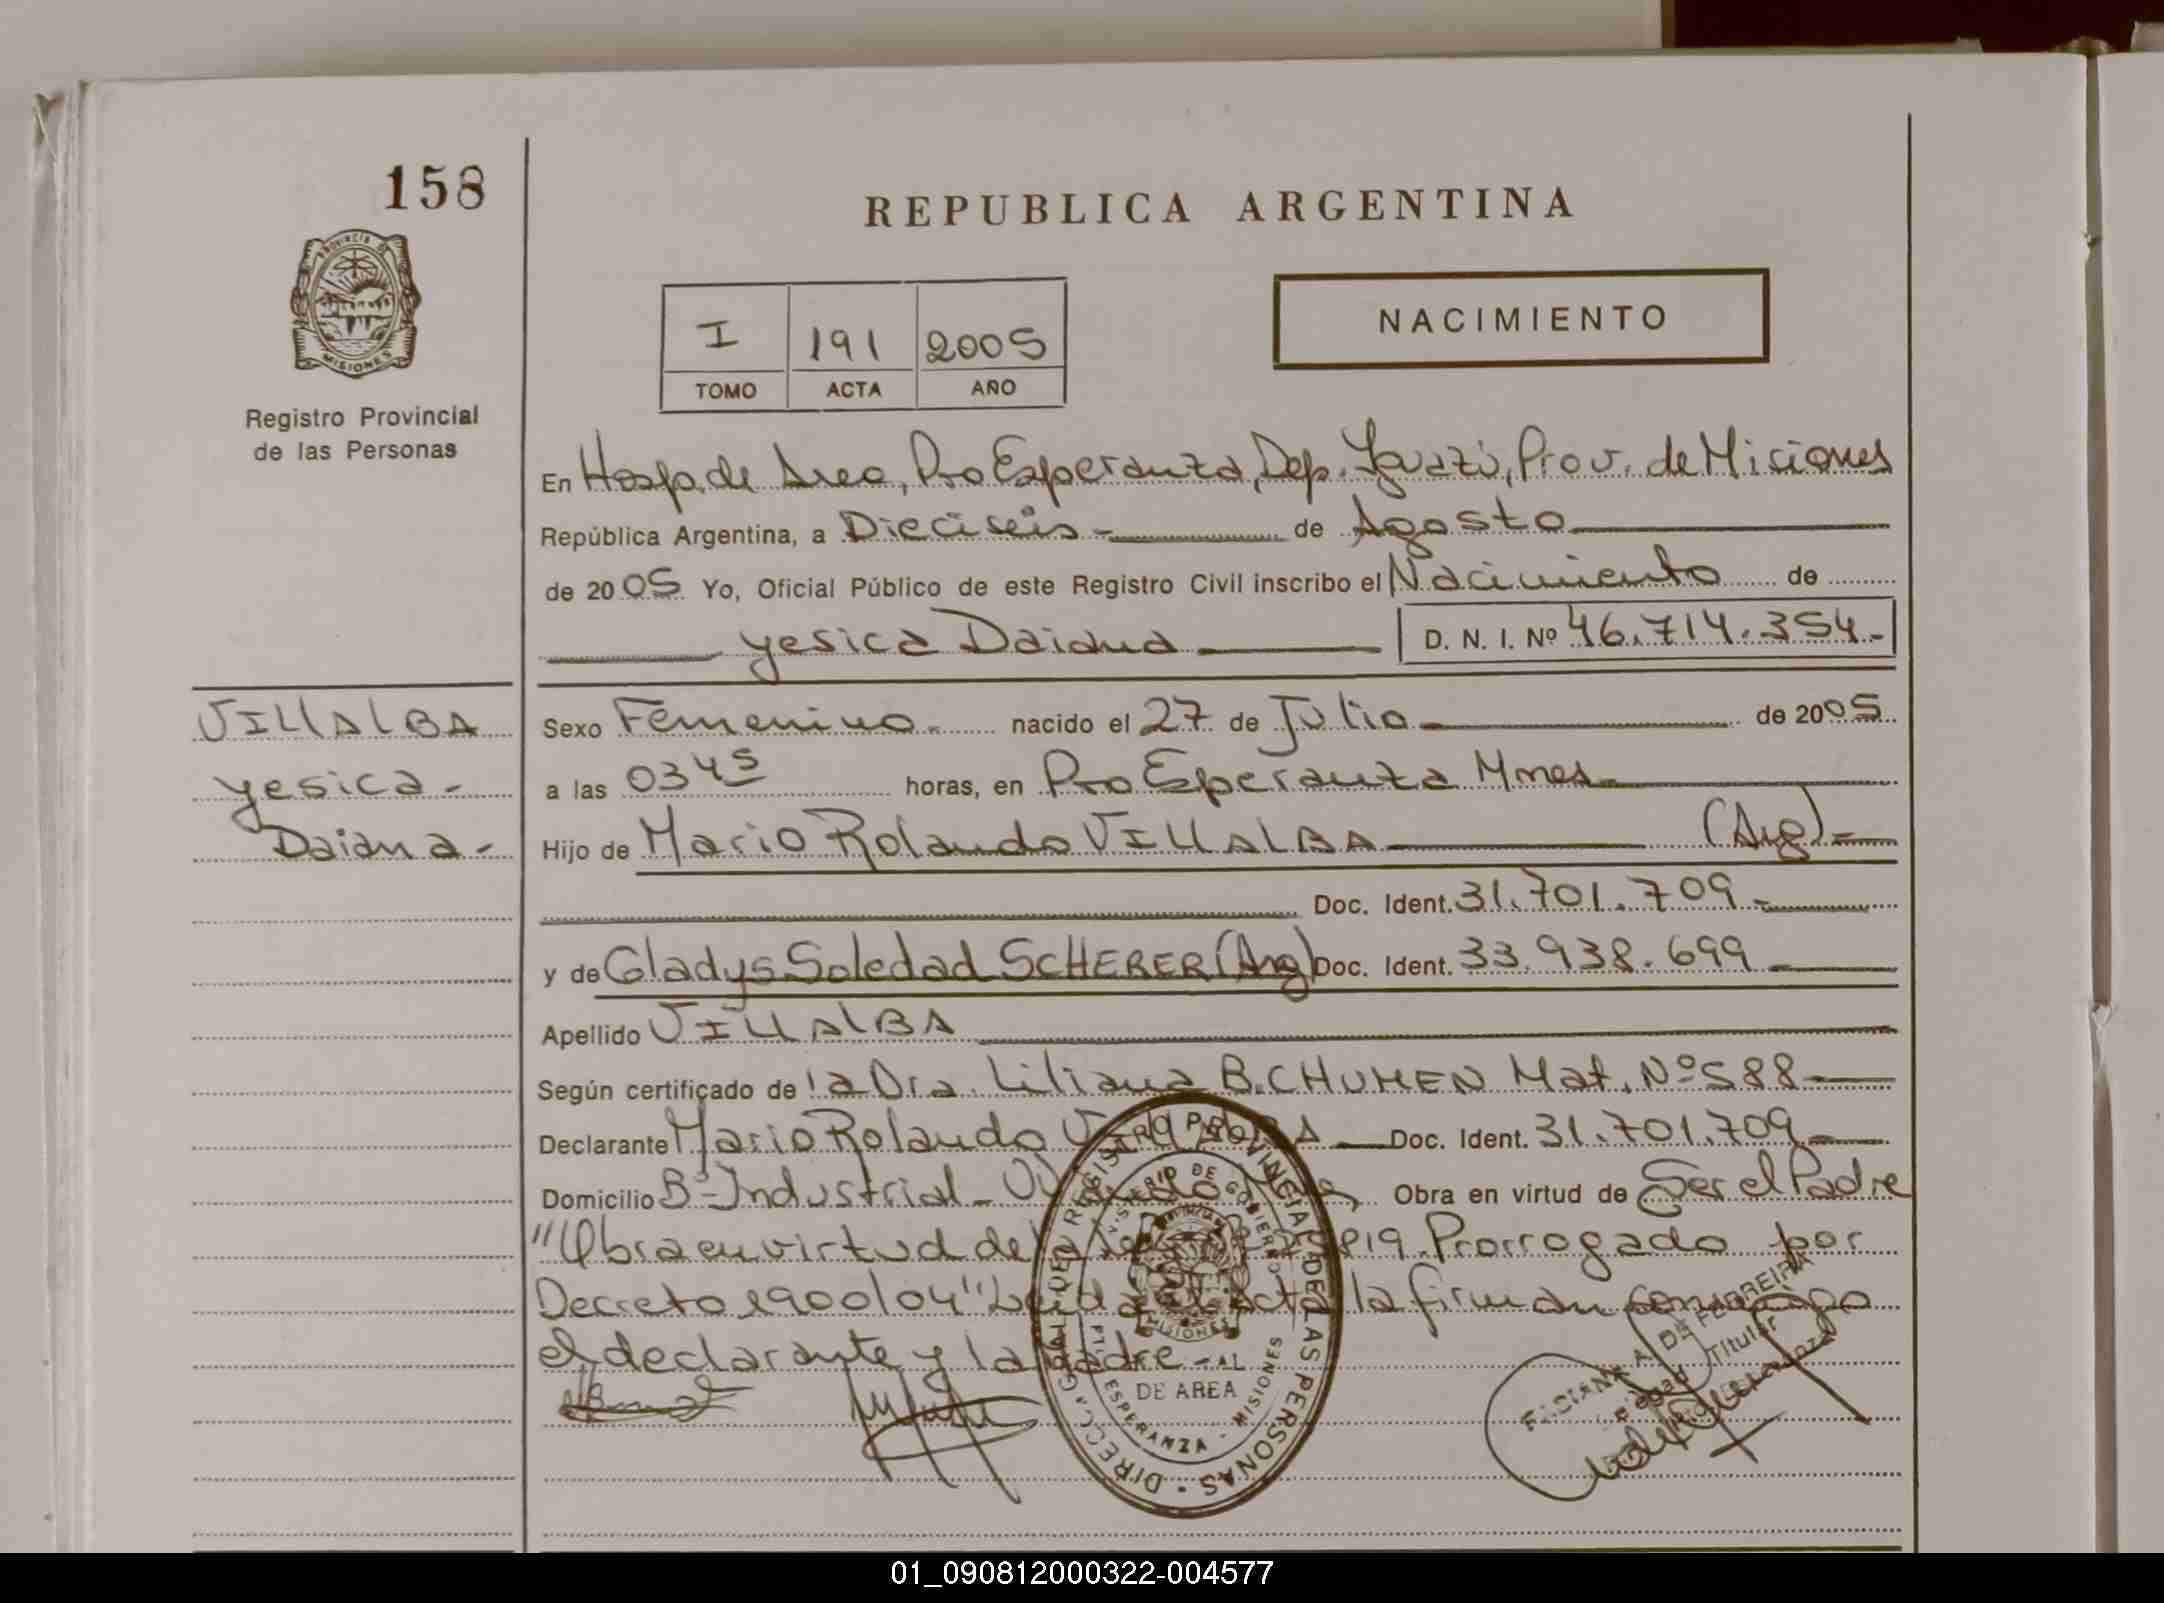 158
REPUBLICA ARGENTINA
PROVINCIA DE
MISIONES
Registro Provincial
de las Personas
I 191 2005
TOMO ACTA AÑO
NACIMIENTO
En Hosp. de Area, Pto Esperanza, Dep. Iguazú, Prov. de Miciones
República Argentina, a Dieciseis de Agosto
de 2005 Yo, Oficial Público de este Registro Civil inscribo el Nacimiento de
yesica Daiana D. N. I. Nº 46.714.354.-
VILLALBA
yesica-
Daiana-
Sexo Femenino.- nacido el 27 de Julio de 2005
a las 0345 horas, en Pto Esperanza Mnes
Hijo de Mario Rolando VILLALBA (Arg)
Doc. Ident. 31.701.709
y de Gladys Soledad SCHERER (Arg) Doc. Ident. 33.938.699
Apellido VILLALBA
Según certificado de la Dra. Liliana B. CHUMEN Mat. Nº 588
Declarante Mario Rolando Doc. Ident. 31.701.709
Domicilio Bº Industrial - Obra en virtud de Ser el Padre
"Obra en virtud de la Prorrogado por
Decreto 1900/04" Leida el Acta la firman conmigo
el declarante y la Madre-
REGISTRO PROVINCIAL DE LAS PERSONAS
DE AREA
ESPERANZA - MISIONES
DE FERREIRA
Titular
01_090812000322-004577